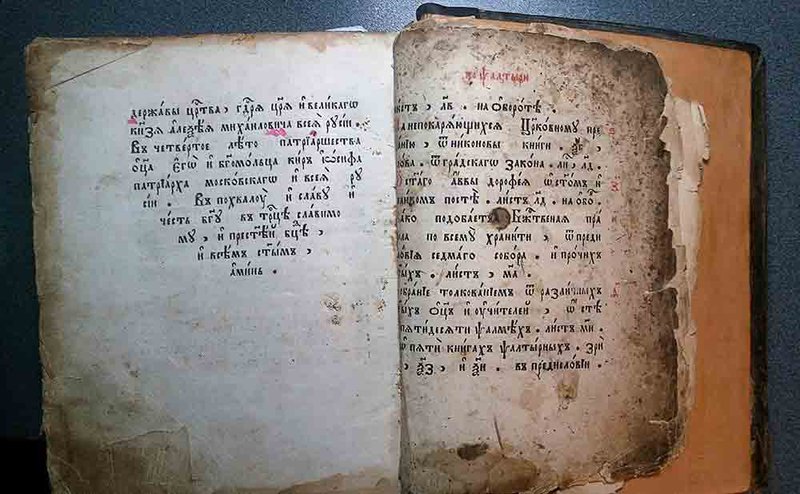 держа́вы црⷭ҇тва , гдⷭ҇рѧ цр҃ѧ и҆ вели́кагѡ
кн҃зѧ а҆леѯѣ́ѧ миха́иловича всеѧ̀ рꙋсі́и .
Въ четве́ртое лѣ́то патрїа́ршества
ѻ҆ц҃а̀ є҆гѡ̀ и҆ бг҃омо́льца ки́ръ і҆ѡ́сифа
патрїа́рха моско́вскагѡ и҆ всеѧ̀ рꙋ
сі́и . Въ похвалꙋ̀ и҆ сла́вꙋ и҆
че́сть бг҃ꙋ въ трⷪ҇цѣ сла́вимо
мꙋ , и҆ прест҃ѣ́й бц҃ѣ ,
и҆ всѣ́мъ ст҃ы́мъ ,
а҆ми́нь .
во ѱалты́ри
и́стъ , лв . на ѻ҆боро́тѣ .
непокарѧ́ющихсѧ Цр҃ко́вномꙋ пре
нїю , ѿ ни́коновы кни́ги
ѿ гра́дскагѡ зако́на . ли лд .
ст҃а́го а҆́ввы дорофе́ѧ ѡ҆ ст҃о́мъ и҆
постѣ̀ . ли́стъ лд . на ѻ҆бо .
ко подоба́етъ Бжⷭ҇твенаѧ пра
ла по всемꙋ̀ храни́ти , ѿ преди
ло́вїѧ седма́го собо́ра и҆ про́чихъ
ы́хъ . ли́стъ , ма .
бра́нїе толкова́нїемъ ѿ разли́чныхъ
ы́хъ ѻ҆ц҃ъ и҆ ᲂу҆чи́телей , ѡ҆ стѣ
пѧти́десѧти ѱалмѣ́хъ . ли́стъ ми .
ѡ҆ пѧтѝ кни́гахъ ѱалты́рныхъ . Зрѝ
, ѯз , и҆ ѯи . въ предисло́вїи .